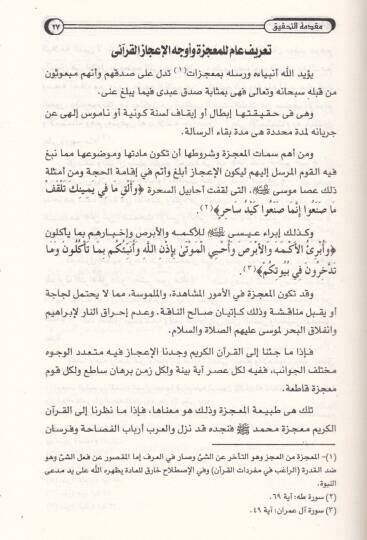 مقدمة التحقيق
٢٧
تعريف عام للمعجزة وأوجه الإعجاز القرآنى
يؤيد الله أنبياءه ورسله بمعجزات(١) تدل على صدقهم وأنهم مبعوثون
من قبله سبحانه وتعالى فهى بمثابة صدق عبدى فيما يبلغ عنى.
وهى فى حقيقتها إبطال أو إيقاف لسنة كونية أو ناموس إلهى عن
جريانه لمدة محددة هى مدة بقاء الرسالة.
ومن أهم سمات المعجزة وشروطها أن تكون مادتها وموضوعها مما نبغ
فيه القوم المرسل إليهم ليكون الإعجاز أبلغ وأتم في إقامة الحجة ومن أمثلة
ذلك عصا موسى ﷺ، التى لقفت أحابيل السحرة ﴿وَأَلْقِ مَا فِي يَمِينِكَ تَلْقَفْ
مَا صَنَعُوا إِنَّمَا صَنَعُوا كَيْدُ سَاحِرٍ﴾(٢).
وكذلك إبراء عيسى ﷺ للأكمه والأبرص وإخبارهم بما يأكلون
﴿وَأُبْرِئُ الأَكْمَهَ وَالأَبْرَصَ وَأُحْيِي الْمَوْتَىٰ بِإِذْنِ اللَّهِ وَأُنَبِّئُكُم بِمَا تَأْكُلُونَ وَمَا
تَدَّخِرُونَ فِي بُيُوتِكُمْ﴾(٣).
وقد تكون المعجزة في الأمور المشاهدة، والملموسة، مما لا يحتمل لجاجة
أو يقبل مناقشة وذلك كإتيان صالح الناقة. وعدم إحراق النار لإبراهيم
وانفلاق البحر لموسى عليهم الصلاة والسلام.
فإذا ما جئنا إلى القرآن الكريم وجدنا الإعجاز فيه متعدد الوجوه
مختلف الجوانب، ففيه لكل عصر آية بينة ولكل زمن برهان ساطع ولكل قوم
معجزة قاطعة.
تلك هى طبيعة المعجزة وذلك هو معناها، فإذا ما نظرنا إلى القرآن
الكريم معجزة محمد ﷺ فنجده قد نزل والعرب أرباب الفصاحة وفرسان
(١) - المعجزة من العجز وهو التأخر عن الشئ وصار في العرف إما المقصور عن فعل الشئ وهو
ضد القدرة (الراغب في مفردات القرآن) وفي الإصطلاح خارق للعادة يظهره الله على يد مدعى
النبوة.
(٢) سورة طه: آية ٦٩.
(٣) سورة آل عمران: آية ٤٩.